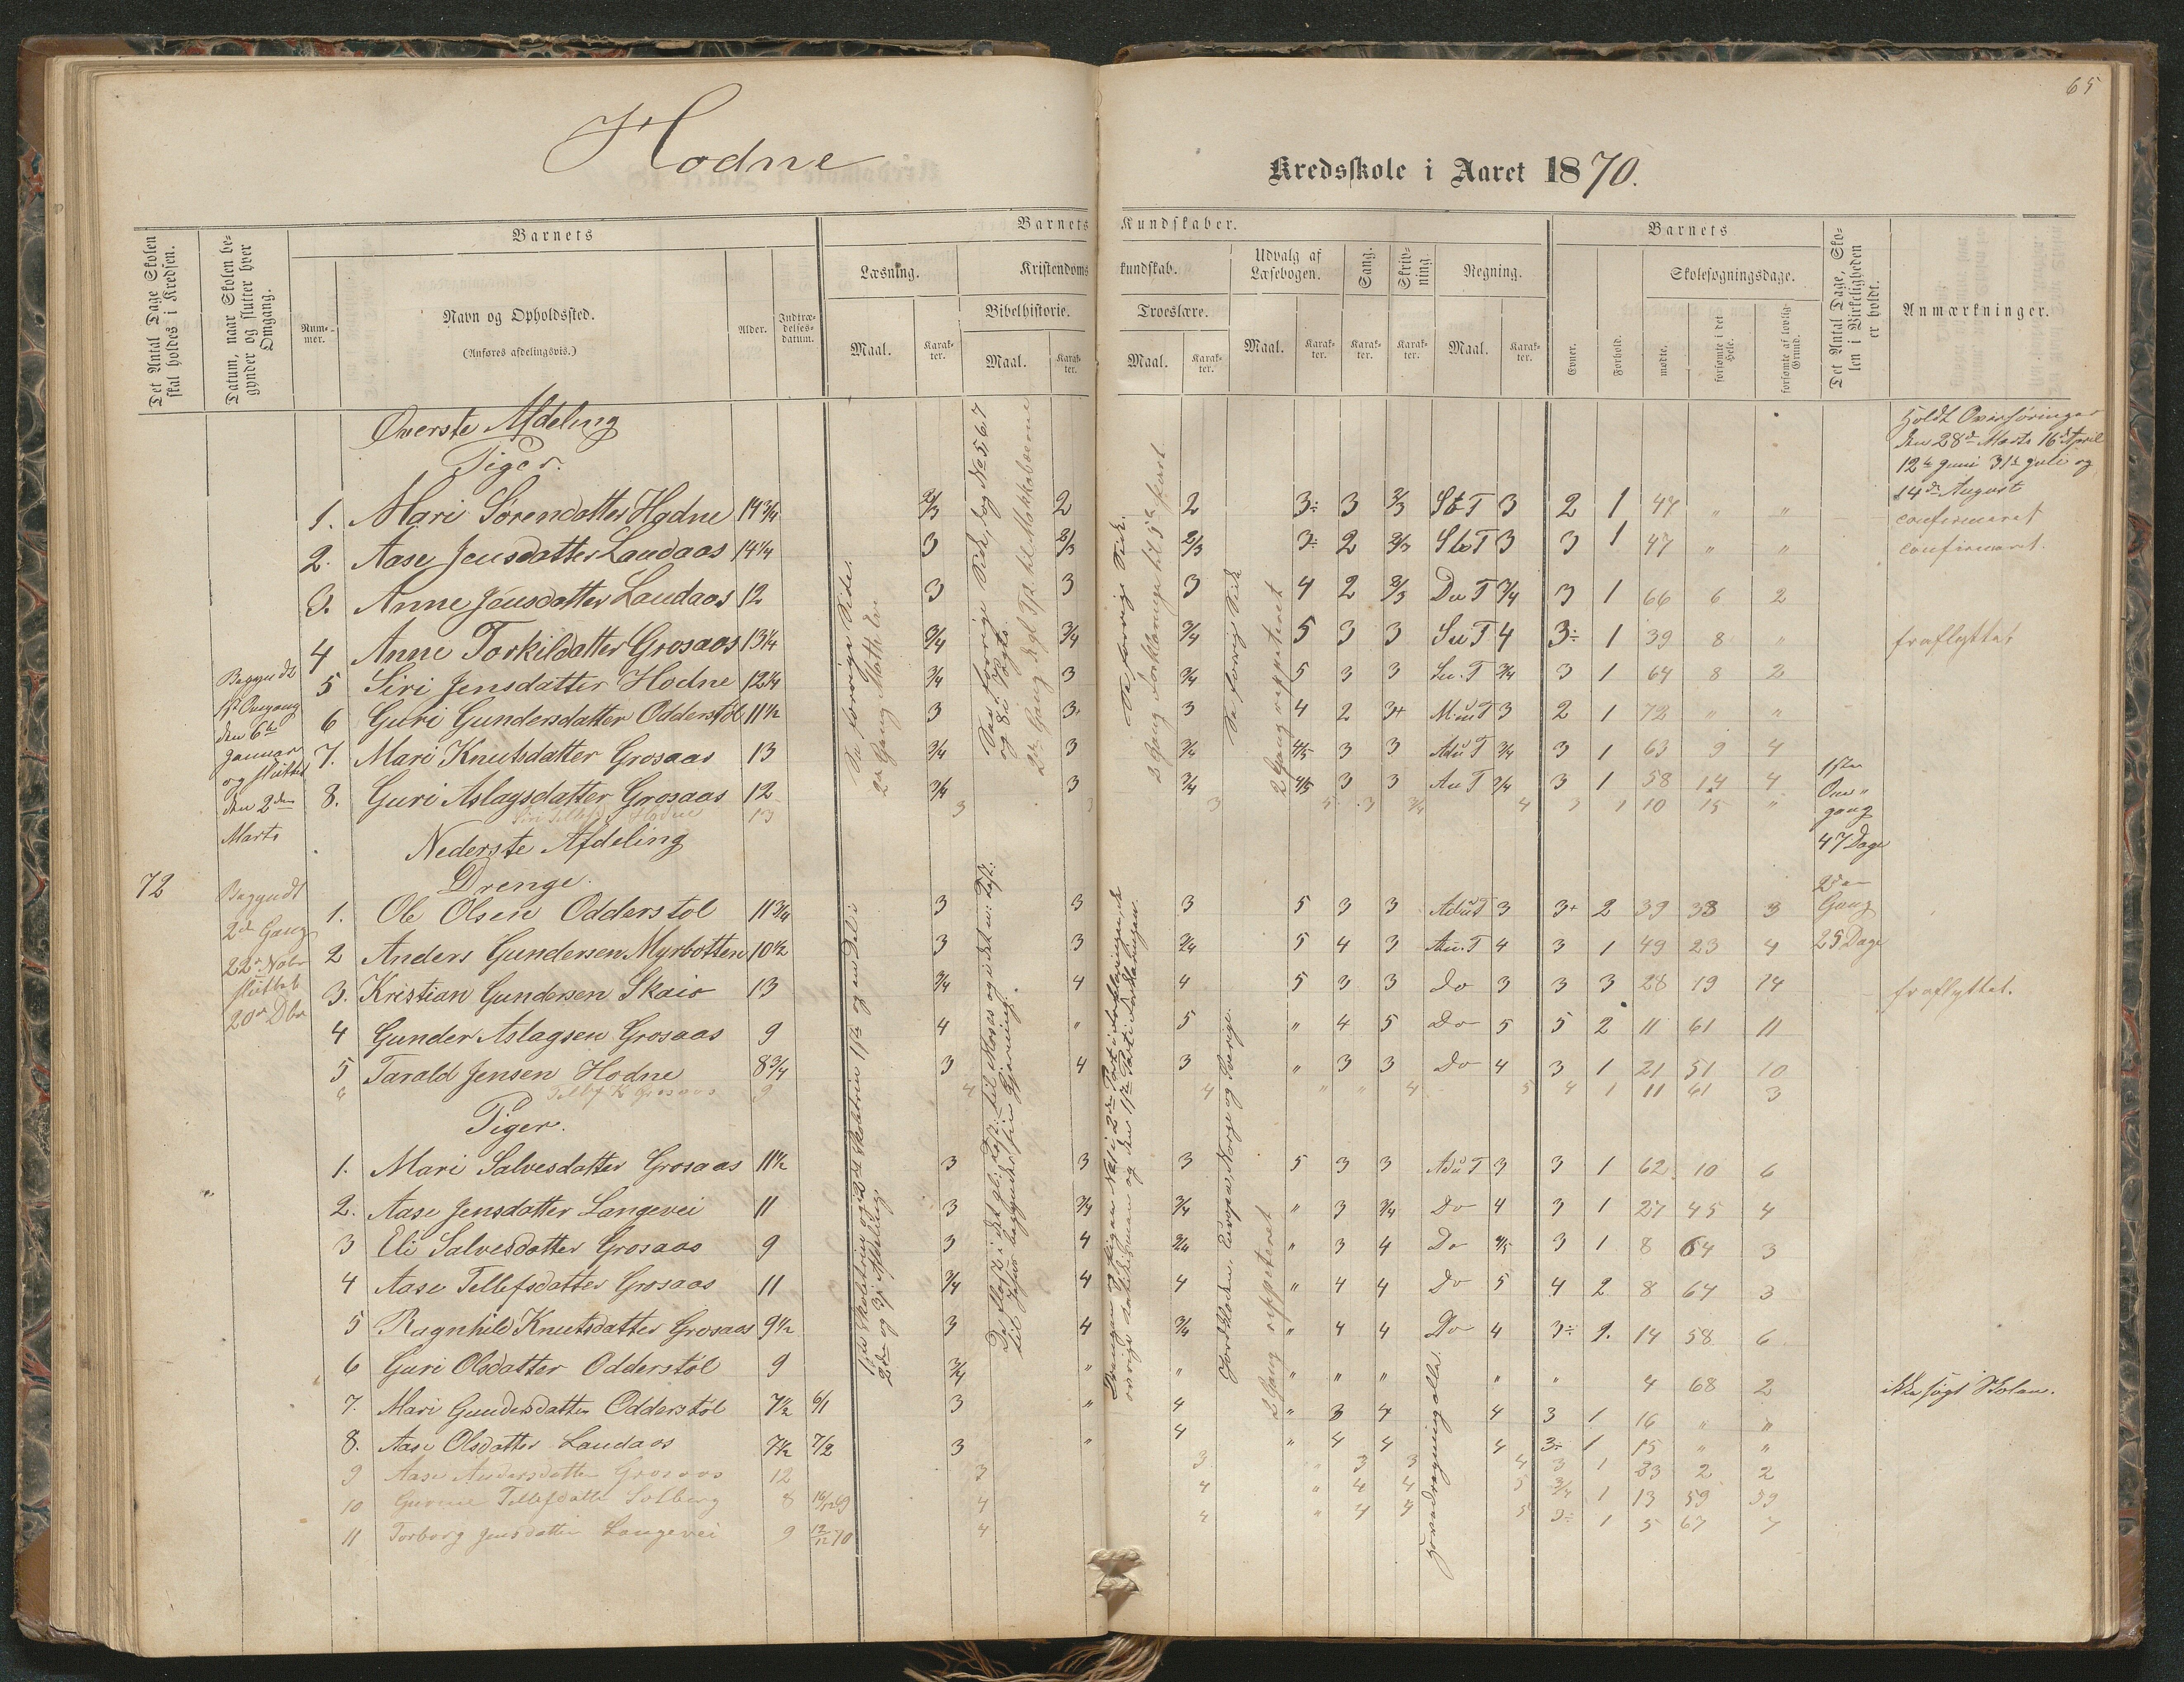 65
Hodne
Kredsskole i Aaret 1870.
Det Antal Dage Skolen skal holdes i Kredsen.
Datum, naar Skolen begynder og slutter hver Omgang.
Barnets
Nummer.
Navn og Opholdssted.
(Anføres afdelingsvis.)
Alder.
Indtrædelsesdatum.
Barnets Kundskaber.
Læsning.
Kristendomskundskab.
Udvalg af Læsebogen.
Sang.
Skrivning.
Regning.
Bibelhistorie.
Troeslære.
Maal. Karakter. Maal. Karakter. Maal. Karakter. Maal. Karakter. Karakter. Karakter. Maal. Karakter.
Barnets
Evner.
Forhold.
Skolesøgningsdage.
mødte.
forsømte i det Hele.
forsømte af lovlig Grund.
Det Antal Dage, Skolen i Virkeligheden er holdt.
Anmærkninger.
Holdt Overhøringer
den 28de Marts 16de April
12te Juni 31te Juli og
14de August
Øverste Afdeling
Piger.
1. Mari Sørendatter Hodne 14 3/4 2/3 2 2 3÷ 3 2/3 St T 3 2 1 47 " " confirmeret
2. Aase Jensdatter Landaas 14 1/4 3 2/3 2/3 3÷ 2 2/3 Su T 3 3 1 47 " " confirmeret.
3. Anne Jensdatter Landaas 12 3 3 3 4 2 2/3 Du T 3/4 3 1 66 6 2
4 Anne Torkildatter Grosaas 13 1/4 3/4 3/4 3/4 5 3 3 Su T 4 3÷ 1 39 8 " fraflyttet
5 Siri Jensdatter Hodne 12 1/4 3/4 3 3/4 5 3 3 Su. T 3/4 3 1 64 8 2
6 Guri Gundersdatter Odderstøl 11 1/2 3 3÷ 3 4 2 3+ Mu T 3 2 1 72 " "
7. Mari Knutsdatter Grosaas 13 3/4 3 3/4 4/5 3 3 Adu T 3/4 3 1 63 9 4
8. Guri Aslagsdatter Grosaas 12 3/4 3 3/4 4/5 3 3 Au T 3/4 3 1 58 14 4
Siri Tellefsd Hodne 13 3 3 3 5 3 3/4 4 3 1 10 15 "
Begyndt
1st Omgang
den 6te
Januar
og sluttet
den 2den
Marts
1ste
Om-
gang
47 Dage
Nederste Afdeling
Drenge.
72
Begyndt
2de Gang
22de Nobr
sluttet
20de Dbr
2den
Gang
25 Dage
1. Ole Olsen Odderstøl 11 3/4 3 3 3 5 3 3 Adu T 3 3+ 2 39 33 3
2 Anders Gundersen Myrbotten 10 1/2 3 3 3/4 5 4 3 Au. T 4 3 1 49 23 4
3. Kristian Gundersen Skaio 13 3/4 4 4 5 3 3 Do 3 3 3 28 19 14 fraflyttet.
4 Gunder Aslagsen Grosaas 9 4 " 5 " 4 5 Do 5 5 2 11 61 11
5 Tarald Jensen Hodne 8 3/4 3 4 3 " 3 3 Do 4 3 1 21 51 10
6 Tellef K Grosaas 9 4 4 " " 4 5 4 1 11 61 3
Piger.
1. Mari Salvesdatter Grosaas 11 1/2 3 3 3 5 3 3 Adu T 3 3 1 62 10 6
2. Aase Jensdatter Langevei 11 3 3/4 3/4 " 3 3/4 Do 4 3 1 27 45 4
3 Eli Salvesdatter Grosaas 9 3 4 3/4 " 3 4 Do 4/5 3 1 8 64 3
4 Aase Tellefsdatter Grosaas 11 3/4 4 4 " 4 4 Do 5 4 2 8 64 3
5 Ragnhild Knutsdatter Grosaas 9 1/2 3 4 3/4 " 4 4 Do 4 3÷ 2. 14 58 6
6 Guri Olsdatter Odderstøl 9 3/4 " " " " " " " 4 68 2 ikke søgt Skolen.
7. Mari Gundersdatter Odderstøl 7 1/2 6/1 3 " 4 " 3 4 4 3 1 16 " "
8. Aase Olsdatter Landaas 7 1/2 7/2 3 " 4 " 4 4 4 3÷ 1 15 " "
9 Aase Andersdatter Grosaas 12 3 3 " 3 3 4 3 1 23 2 2
10 Gunne Tellefdatter Solberg 8 16/12 69 4 4 " 4 4 5 3/4 1 13 59 59
11 Torborg Jensdatter Langevei 9 12/12 70 4 4 " 4 4 5 3÷ 1 5 67 7
Se forrige Side.
2den Gang
Se forrige Side
2 Gang reppeteret
Europa, Norge og Sverige.
2 Gang reppeteret
Hovedregning alle.